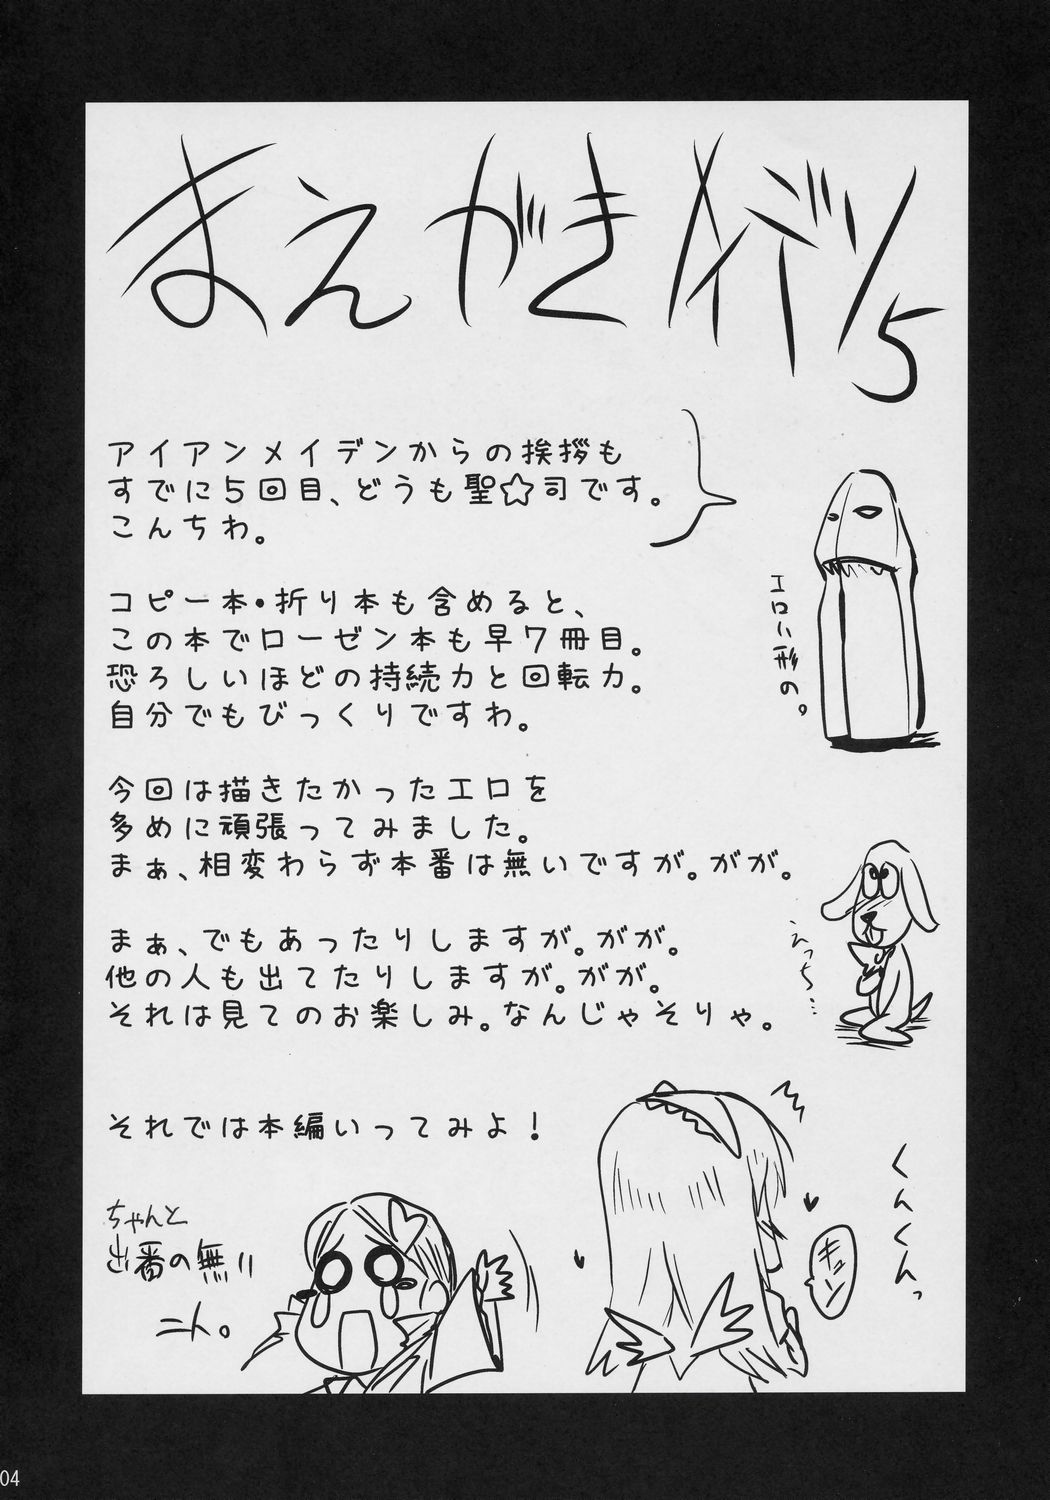 まえがきメイデン5
アイアンメイデンからの挨拶も
すでに5回目、どうも聖☆司です。
こんちわ。
コピー本・折り本も含めると、
この本でローゼン本も早7冊目。
恐ろしいほどの持続力と回転力。
自分でもびっくりですわ。
エロい形の。
今回は描きたかったエロを
多めに頑張ってみました。
まぁ、相変わらず本番は無いですが。がが。
まぁ、でもあったりしますが。がが。
他の人も出てたりしますが。がが。
それは見てのお楽しみ。なんじゃそりゃ。
えっち…
それでは本編いってみよ!
くんくんっ
キュン
ちゃんと
出番の無い
ニト。
04